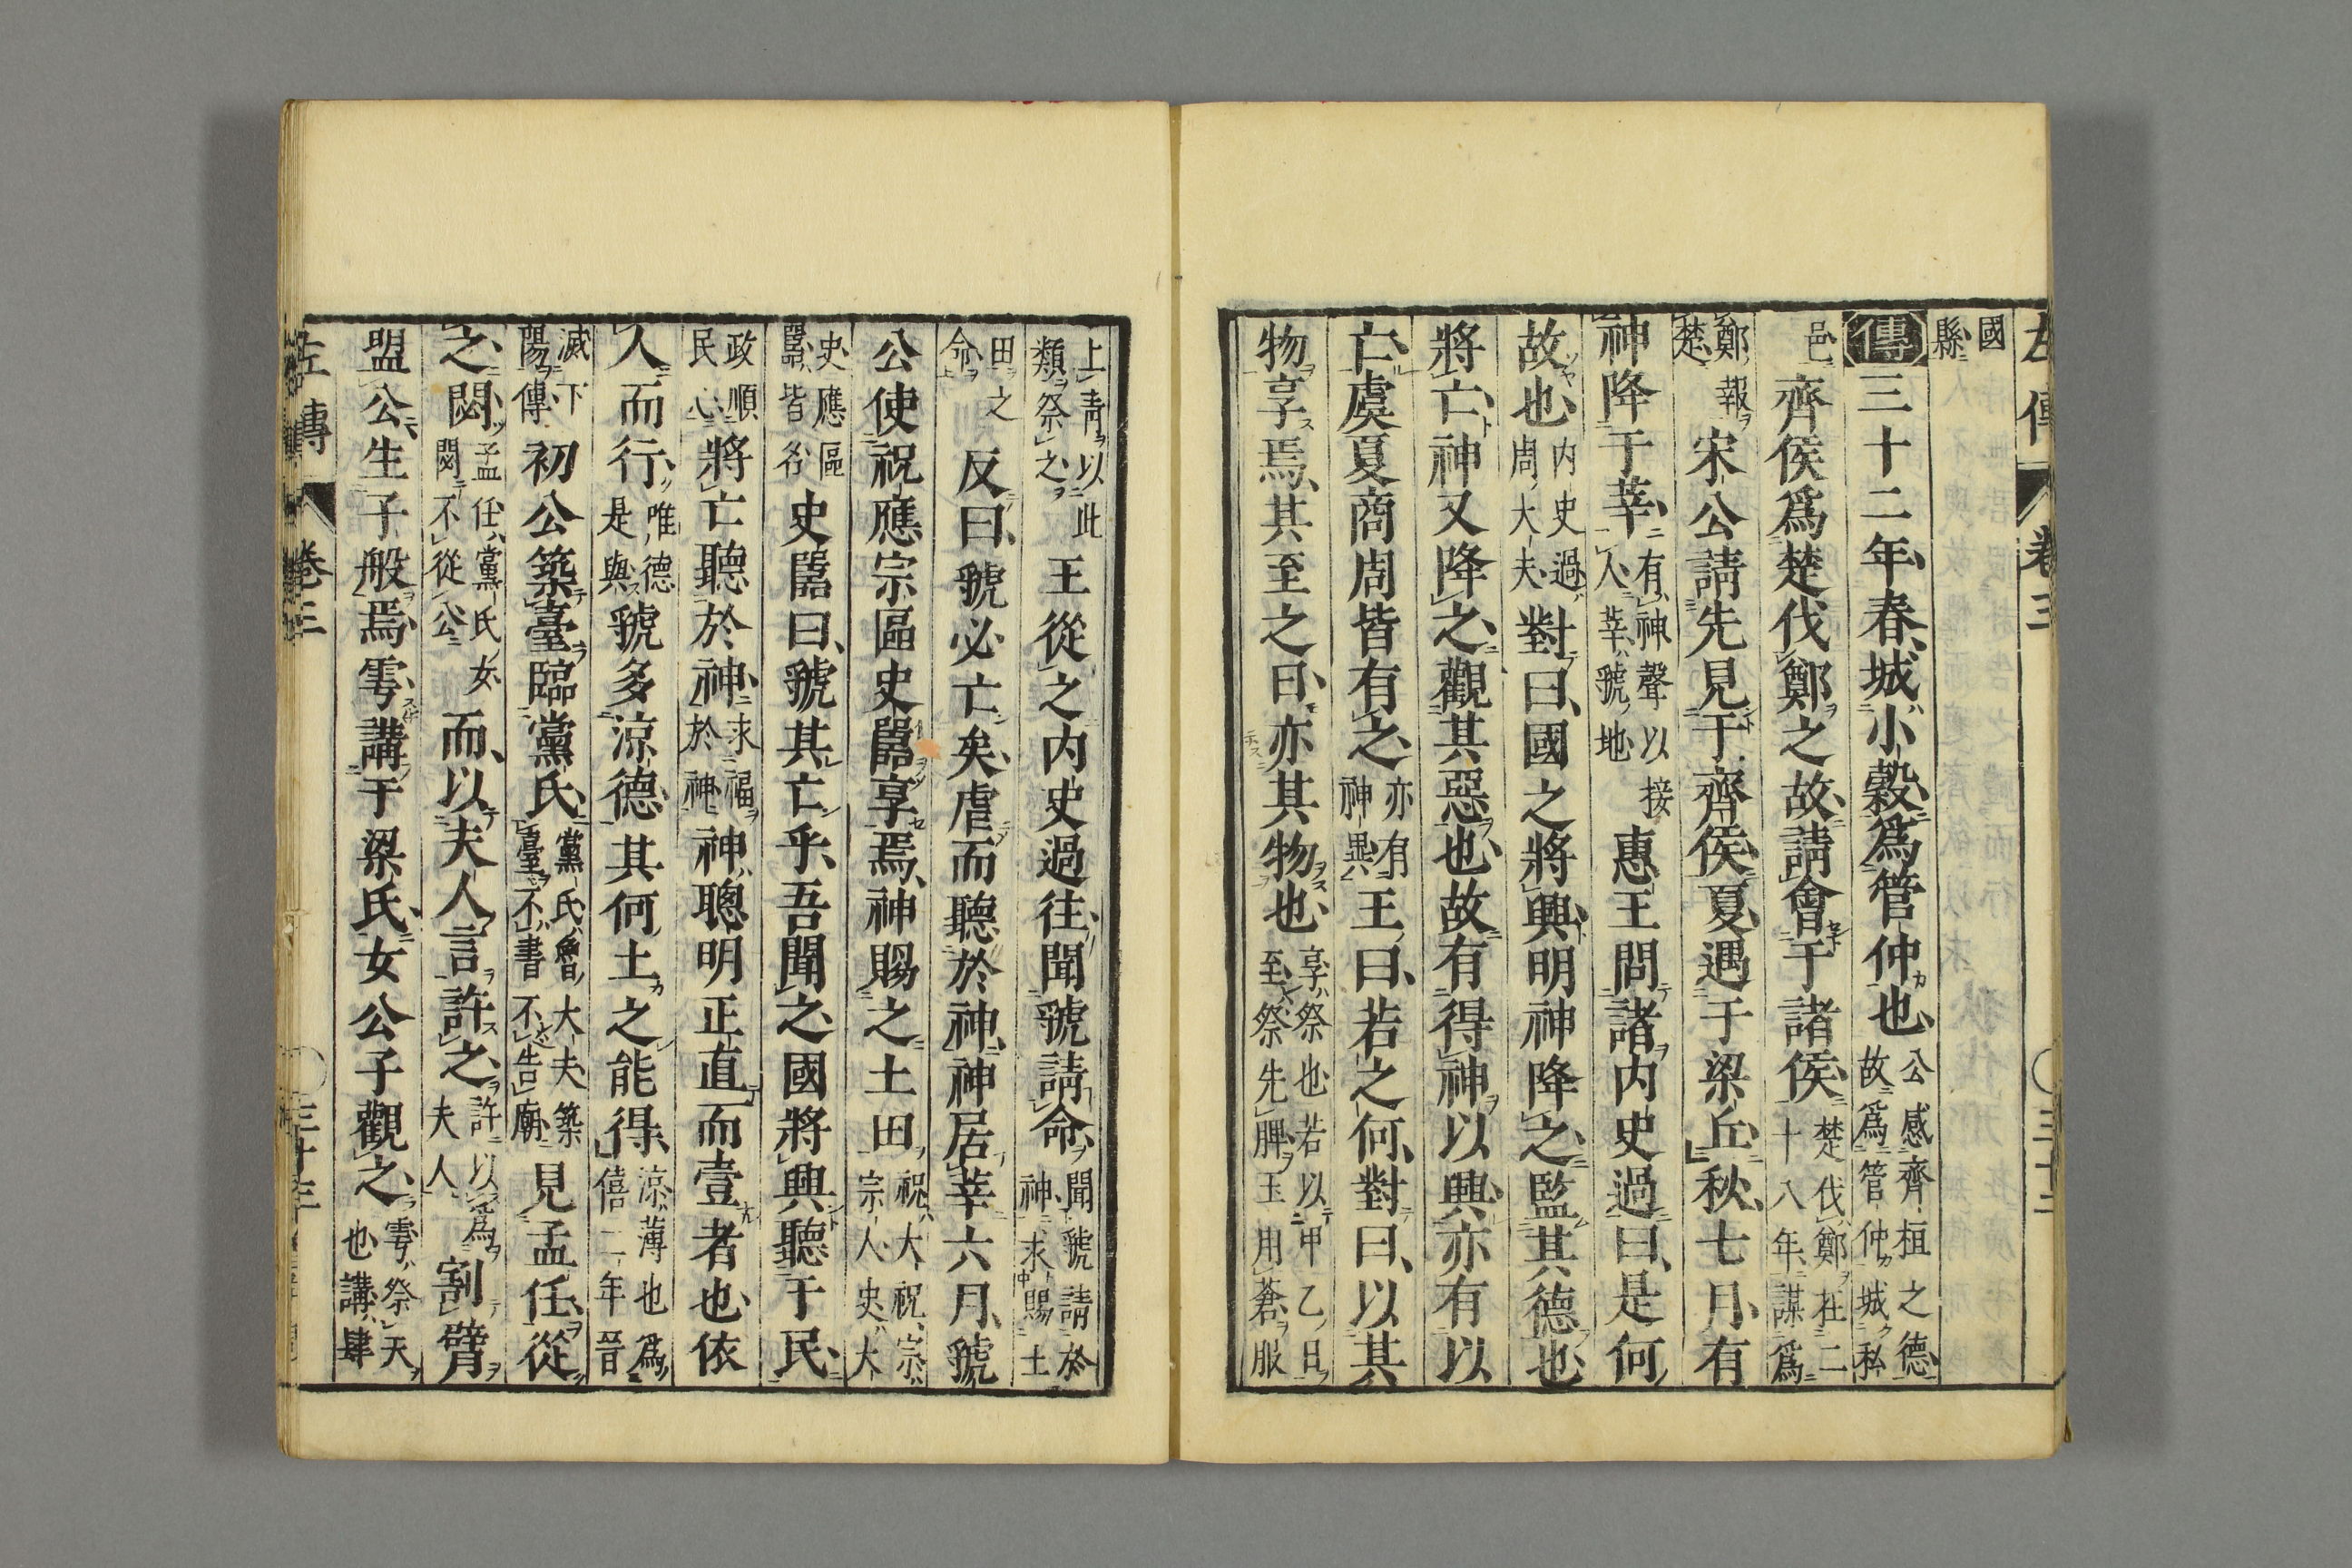 左傳 卷三 三十二
國縣
傳三十二年春城小穀爲管仲也公感齊桓之德故爲管仲城私
邑齊侯爲楚伐鄭之故請會于諸侯楚伐鄭在二十八年謀爲
鄭報楚宋公請先見于齊侯夏遇于梁丘秋七月有
神降于莘有神聲以接人莘虢地惠王問諸內史過曰是何
故也內史過周大夫對曰國之將興明神降之監其德也
將亡神又降之觀其惡也故有得神以興亦有以
亡虞夏商周皆有之亦有神異王曰若之何對曰以其
物享焉其至之日亦其物也享祭也若以甲乙日至祭先脾玉用蒼服
上靑以此類祭之王從之內史過往聞虢請命聞虢請於神求賜土
田之命反曰虢必亡矣虐而聽於神神居莘六月虢
公使祝應宗區史嚚享焉神賜之土田祝大祝宗宗人史大
史應區嚚皆名史嚚曰虢其亡乎吾聞之國將興聽于民
政順民心將亡聽於神求福於神神聰明正直而壹者也依
人而行唯德是與虢多涼德其何土之能得涼薄也爲僖二年晉
滅下陽傳初公築臺臨黨氏黨氏魯大夫築臺不書不告廟見孟任從
之閟孟任黨氏女閟不從公而以夫人言許之許以爲夫人割臂
盟公生子般焉雩講于梁氏女公子觀之雩祭天也講肄
左傳 卷三 三十三